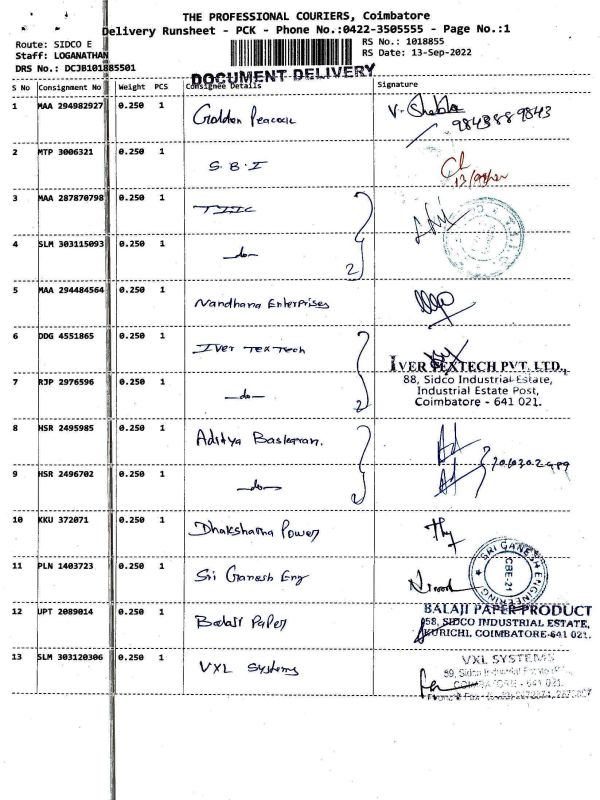 THE PROFESSIONAL COURIERS, Coimbatore
Delivery Runsheet - PCK - Phone No.:0422-3505555 - Page No.:1
Route: SIDCO E
Staff: LOGANATHAN
DRS No.: DCJB101885501
RS No.: 1018855
RS Date: 13-Sep-2022
DOCUMENT DELIVERY
S No Consignment No Weight PCS Consignee Details Signature
1 MAA 294982927 0.250 1 Golden Peacock
9843889843
2 MTP 3006321 0.250 1 S.B.I
3 MAA 287870798 0.250 1 TIIC
4 SLM 303115093 0.250 1 -do- 2
5 MAA 294484564 0.250 1 Nandhana Enterprises
6 DDG 4551865 0.250 1 Iver Tex Tech
IVER TEXTECH PVT. LTD.,
88, Sidco Industrial Estate,
Industrial Estate Post,
Coimbatore - 641 021.
7 RJP 2976596 0.250 1 -do- 2
8 HSR 2495985 0.250 1 Aditya Baskaran.
9 HSR 2496702 0.250 1 -do- 2
10 KKU 372071 0.250 1 Dhakshana Power
11 PLN 1403723 0.250 1 Sri Ganesh Eng
SRI GANESH ENGINEERING
CBE-21
12 UPT 2089014 0.250 1 Balaji Paper
BALAJI PAPER PRODUCT
58, SIDCO INDUSTRIAL ESTATE,
KURICHI, COIMBATORE-641 021.
13 SLM 303120306 0.250 1 VXL Systems
VXL SYSTEMS
59, Sidco Industrial Estate
COIMBATORE - 641 021.